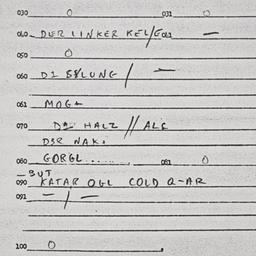 030 0 031 0
040 DER LINKER KEL/ 041 —
050 0
060 DI / —
061 MOG
070 HALZ // ALS
DER NAK.
080 GORGL...... 081 0
— BUT
090 KATAR OGL COLD Q-AR
091 — / —
100 0